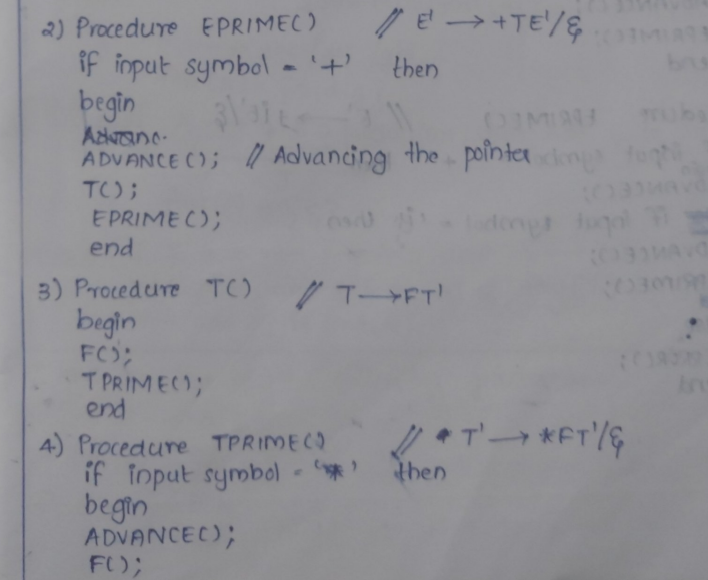 2) Procedure EPRIME() // E' → +TE'/ε
if input symbol = '+' then
begin
ADVANCE(); // Advancing the pointer
T();
EPRIME();
end
3) Procedure T() // T → FT'
begin
F();
TPRIME();
end
4) Procedure TPRIME() // T' → *FT'/ε
if input symbol = '*' then
begin
ADVANCE();
F();